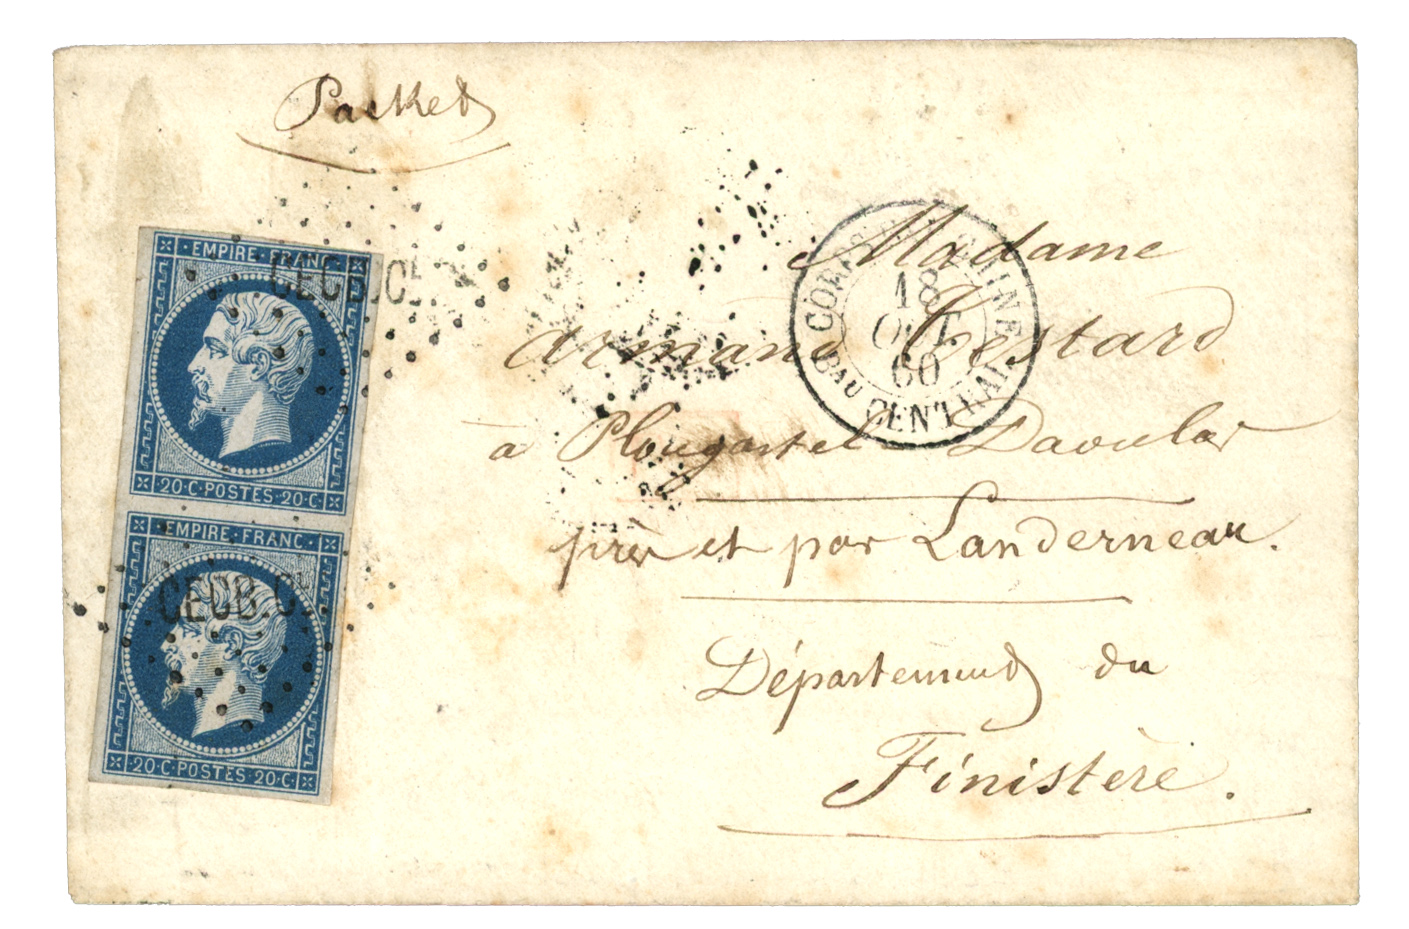 Packet
EMPIRE · FRANC ·
CECB
20 · C · POSTES · 20 · C ·
EMPIRE · FRANC ·
CECB
20 · C · POSTES · 20 · C ·
18
OCT.
60
BAU CENTRAL
Madame
Armand Testard
à Plougastel Daoulas
près et par Landerneau.
Département du
Finistère.